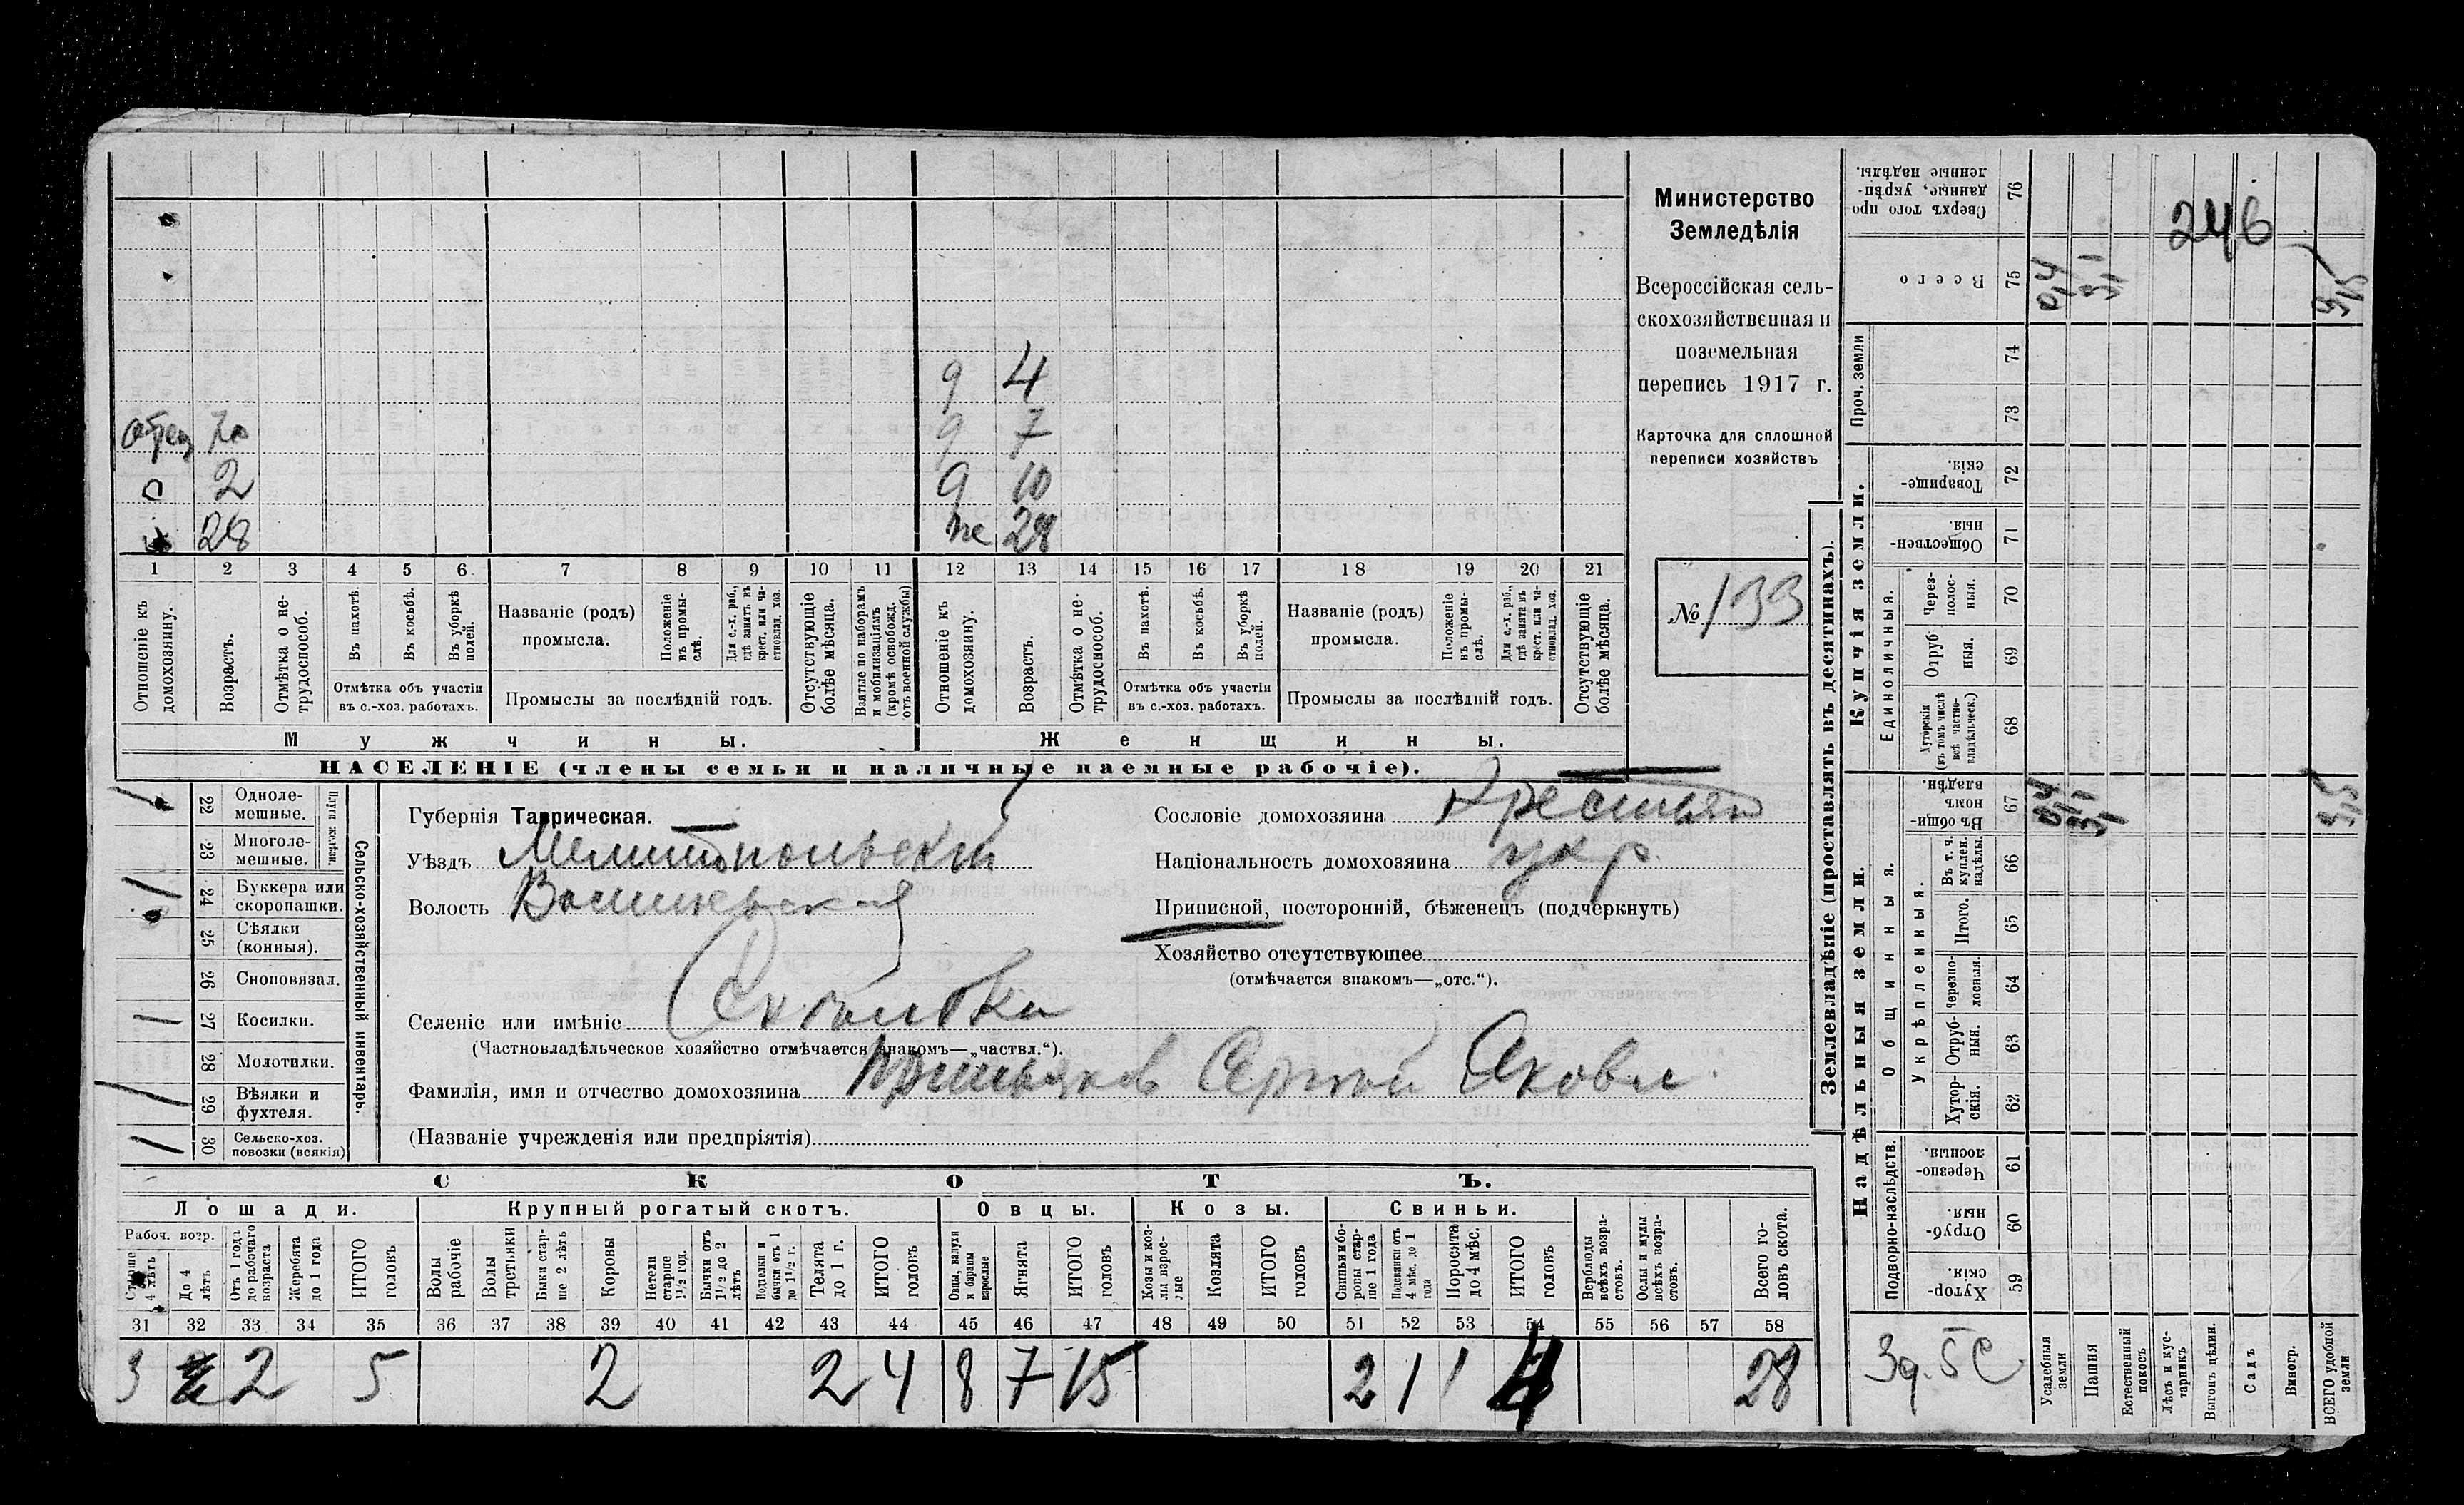 Министерство
Земледѣлія
Всероссійская сель-
скохозяйственная и
поземельная
перепись 1917 г.
Карточка для сплошной
переписи хозяйствъ
№ 133
9 4
9 7
9 10
28
отец 70
2
28
1 2 3 4 5 6 7 8 9 10 11 12 13 14 15 16 17 18 19 20 21
Отношеніе къ домохозяину.
Возрастъ.
Отмѣтка о не-трудоспособ.
Въ пахотѣ.
Въ косьбѣ.
Въ уборкѣ полей.
Отмѣтка объ участіи въ с.-хоз. работахъ.
Названіе (родъ) промысла.
Положеніе въ промы-слѣ.
Для с.-х. раб., гдѣ занятъ въ крест. или ча-стновлад. хоз.
Промыслы за послѣдній годъ.
Отсутствующіе болѣе мѣсяца.
Взятые по наборамъ и мобилизаціямъ (кромѣ освобожд. отъ военной службы)
Отношеніе къ домохозяину.
Возрастъ.
Отмѣтка о не-трудоспособ.
Въ пахотѣ.
Въ косьбѣ.
Въ уборкѣ полей.
Отмѣтка объ участіи въ с.-хоз. работахъ.
Названіе (родъ) промысла.
Положеніе въ промы-слѣ.
Для с.-х. раб., гдѣ занята въ крест. или ча-стновлад. хоз.
Промыслы за послѣдній годъ.
Отсутствующіе болѣе мѣсяца.
Мужчины. Женщины.
НАСЕЛЕНІЕ (члены семьи и наличные наемные рабочіе).
Сельско-хозяйственный инвентарь.
Плуги желѣзн.
22 Одноле-мешные.
23 Многоле-мешные.
24 Буккера или скоропашки.
25 Сѣялки (конныя).
26 Сноповязал.
27 Косилки.
28 Молотилки.
29 Вѣялки и фухтеля.
30 Сельско-хоз. повозки (всякія)
Губернія Таврическая.
Уѣздъ Мелитопольскій
Волость
Селеніе или имѣніе
(Частновладѣльческое хозяйство отмѣчается знакомъ—„частвл.“).
Фамилія, имя и отчество домохозяина Сергей Яковл.
(Названіе учрежденія или предпріятія)
Сословіе домохозяина Крестьян
Національность домохозяина укр.
Приписной, посторонній, бѣженецъ (подчеркнуть)
Хозяйство отсутствующее
(отмѣчается знакомъ—„отс.“).
СКОТЪ.
Лошади. Крупный рогатый скотъ. Овцы. Козы. Свиньи.
Рабоч. возр.
Старше 4 лѣтъ
До 4 лѣтъ
Отъ 1 года до рабочаго возраста
Жеребята до 1 года
ИТОГО головъ
Волы рабочіе
Волы третьяки
Быки стар-ше 2 лѣтъ
Коровы
Нетели старше 1½ год.
Бычки отъ 1½ до 2 лѣтъ
Подтелки и бычки отъ 1 до 1½ г.
Телята до 1 г.
ИТОГО головъ
Овцы, валухи и бараны взрослые
Ягнята
ИТОГО головъ
Козы и коз-лы взрос-лые
Козлята
ИТОГО головъ
Свиньи и бо-ровы стар-ше 1 года
Подсвинки отъ 4 мѣс. до 1 года
Поросята до 4 мѣс.
ИТОГО головъ
Верблюды всѣхъ возра-стовъ.
Ослы и мулы всѣхъ возра-стовъ.
Всего го-ловъ скота.
31 32 33 34 35 36 37 38 39 40 41 42 43 44 45 46 47 48 49 50 51 52 53 54 55 56 57 58
3 2 5 2 2 4 8 7 15 2 1 1 4 28
Землевладѣніе (проставлять въ десятинахъ).
Купчія земли.
Надѣльныя земли.
Сверхъ того про-данные, укрѣп-ленные надѣлы. 76
Всего 75
Проч. земли 74 73
Товарище-скія. 72
Обществен-ныя. 71
Единоличныя.
Через-полос-ныя. 70
Отруб-ныя. 69
Хуторскія (въ томъ числѣ всѣ частно-владѣльческ.) 68
Общинныя.
Въ общин-номъ владѣн. 67
Въ т. ч. куплен. надѣлы 66
Укрѣпленныя.
Итого. 65
Черезпо-лосныя. 64
Отруб-ныя. 63
Хутор-скія. 62
Подворно-наслѣдств.
Черезпо-лосныя. 61
Отруб-ныя. 60
Хутор-скія. 59
246
Усадебныя земли
Пашня
Естественный покосъ
Лѣсъ и кус-тарникъ
Выгонъ цѣлин.
Садъ
Виногр.
ВСЕГО удобной земли